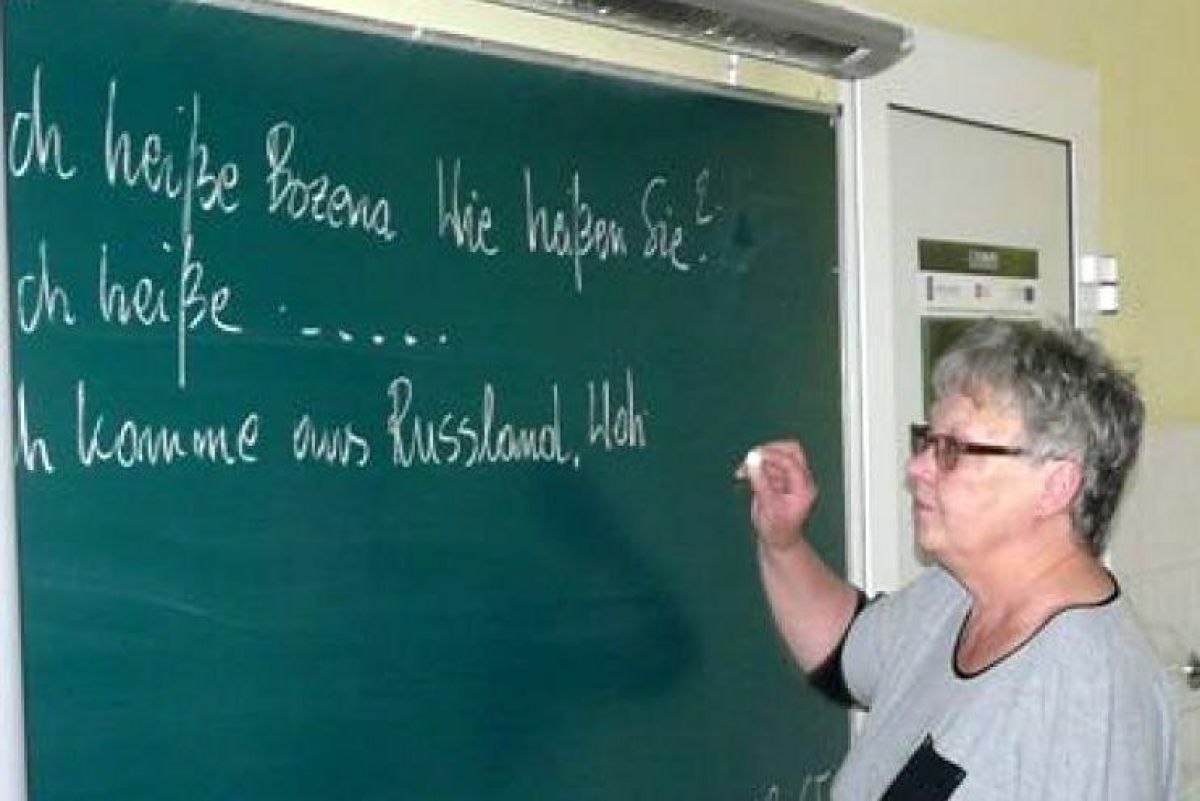 ch heiße Bozena Wie heißen Sie?
ch heiße . - . . . .
h komme aus Russland. Woh